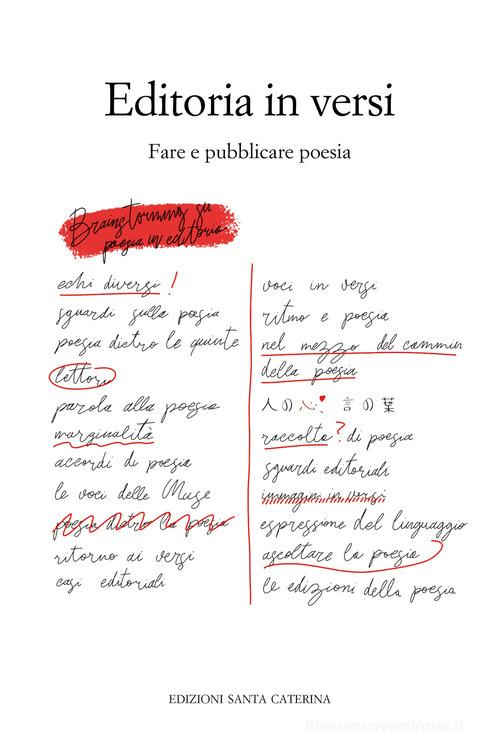 Editoria in versi
Fare e pubblicare poesia
Brainstorming su
poesia in editoria
echi diversi !
sguardi sulla poesia
poesia dietro le quinte
lettori
parola alla poesia
marginalità
accordi di poesia
le voci delle Muse
poesia dietro la poesia
ritorno ai versi
casi editoriali
voci in versi
ritmo e poesia
nel mezzo del cammin
della poesia
人の心 言の葉
raccolta ? di poesia
sguardi editoriali
immagini in versi
espressione del linguaggio
ascoltare la poesia
le edizioni della poesia
EDIZIONI SANTA CATERINA
libreriauniversitaria.it